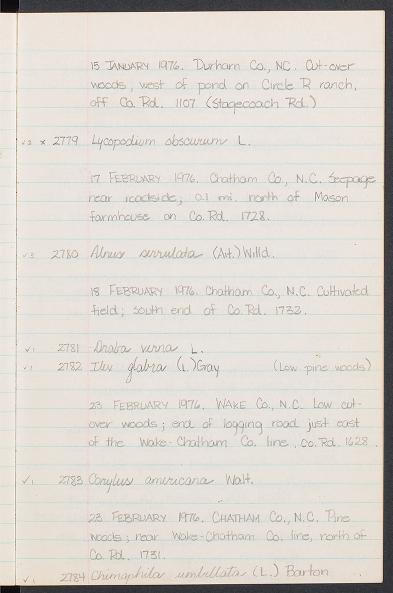 15 JANUARY 1976. Durham Co., NC. Cut-over
woods, west of pond on Circle R ranch,
off Co. Rd. 1107 (Stagecoach Rd.)
√2 x 2779 Lycopodium obscurum L.
17 FEBRUARY 1976. Chatham Co., N.C. Seepage
near roadside, 0.1 mi. north of Mason
farmhouse on Co. Rd. 1728.
√3 2780 Alnus serrulata (Ait.) Willd.
18 FEBRUARY 1976. Chatham Co., N.C. Cultivated
field; south end of Co. Rd. 1733.
√1 2781 Draba verna L.
√1 2782 Ilex glabra (L.) Gray (Low pine woods)
23 FEBRUARY 1976. WAKE Co., N.C. Low cut-
over woods; end of logging road just east
of the Wake-Chatham Co. line, Co. Rd. 1628.
√1 2783 Corylus americana Walt.
23 FEBRUARY 1976. CHATHAM Co., N.C. Pine
woods; near Wake-Chatham Co. line, north of
Co. Rd. 1731.
√1 2784 Chimaphila umbellata (L.) Barton